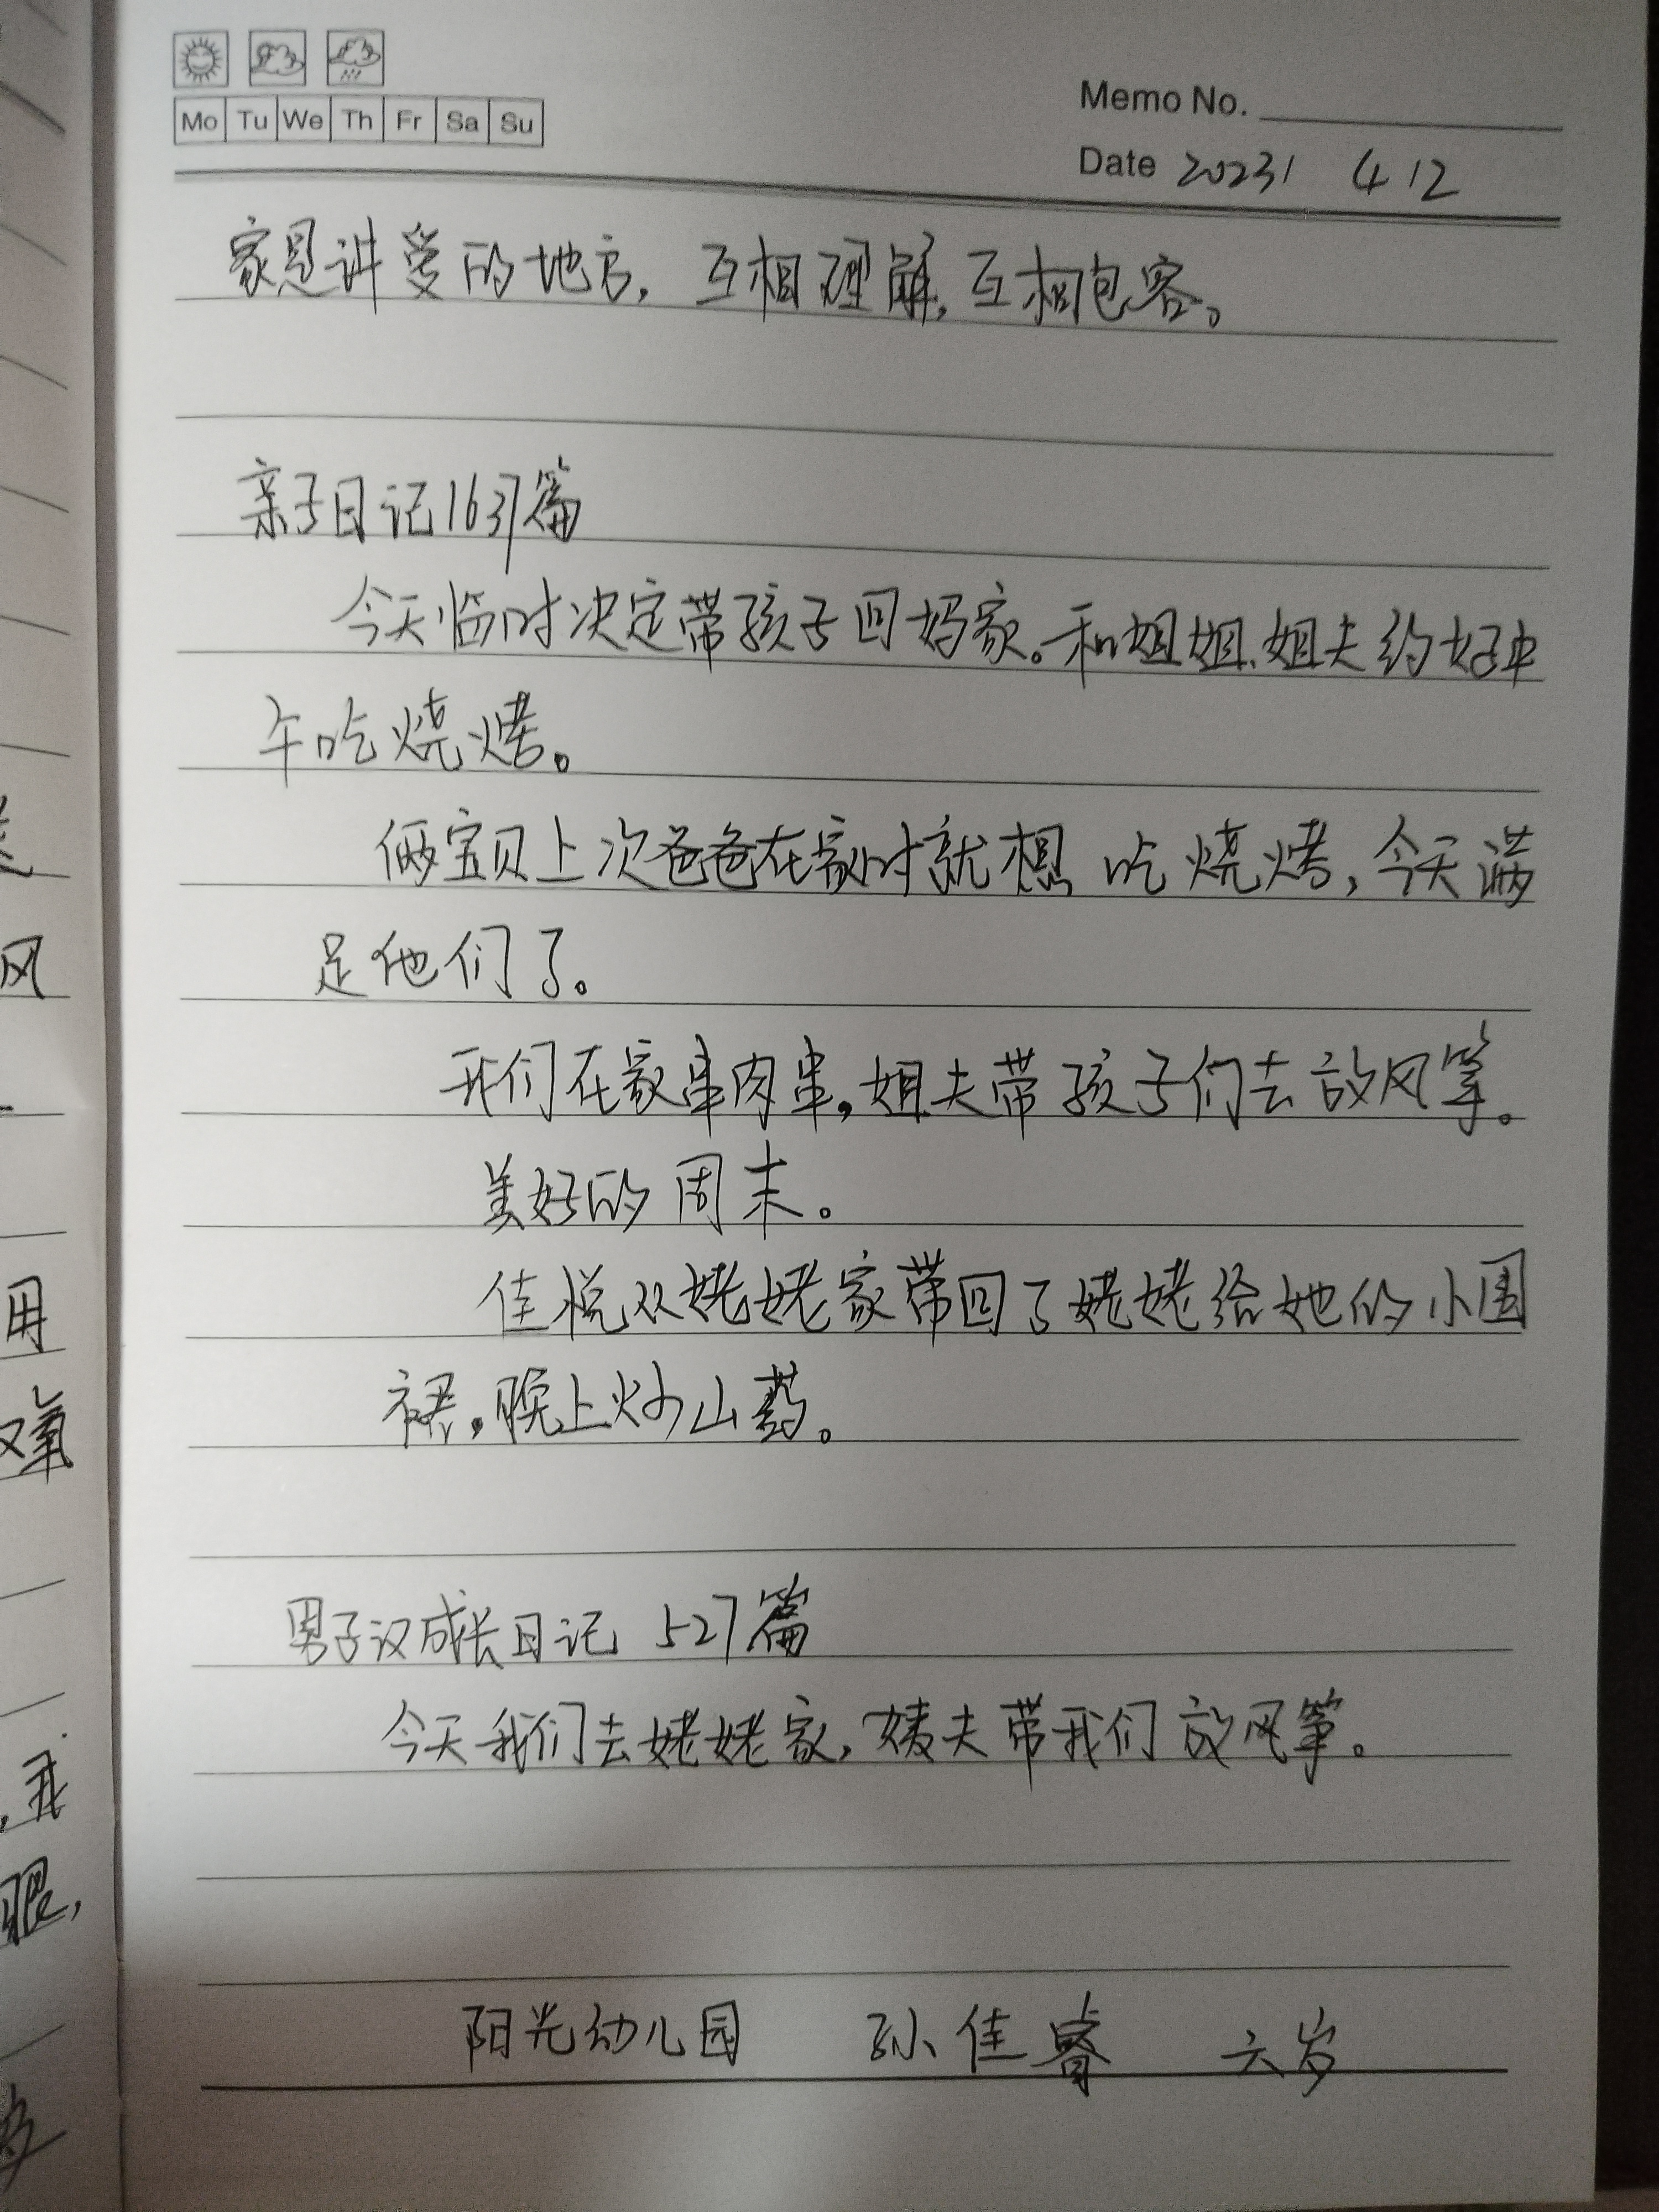 Mo Tu We Th Fr Sa Su
Memo No.
Date 20231 4 12
家是讲爱的地方，互相理解，互相包容。
亲子日记1637篇
今天临时决定带孩子回妈家。和姐姐、姐夫约好中
午吃烧烤。
俩宝贝上次爸爸在家时就想吃烧烤，今天满
足他们了。
我们在家串肉串，姐夫带孩子们去放风筝。
美好的周末。
佳悦从姥姥家带回了姥姥给她的小围
裙，晚上炒山药。
男子汉成长日记 527篇
今天我们去姥姥家，姨夫带我们放风筝。
阳光幼儿园 孙佳睿 六岁
风
用
我